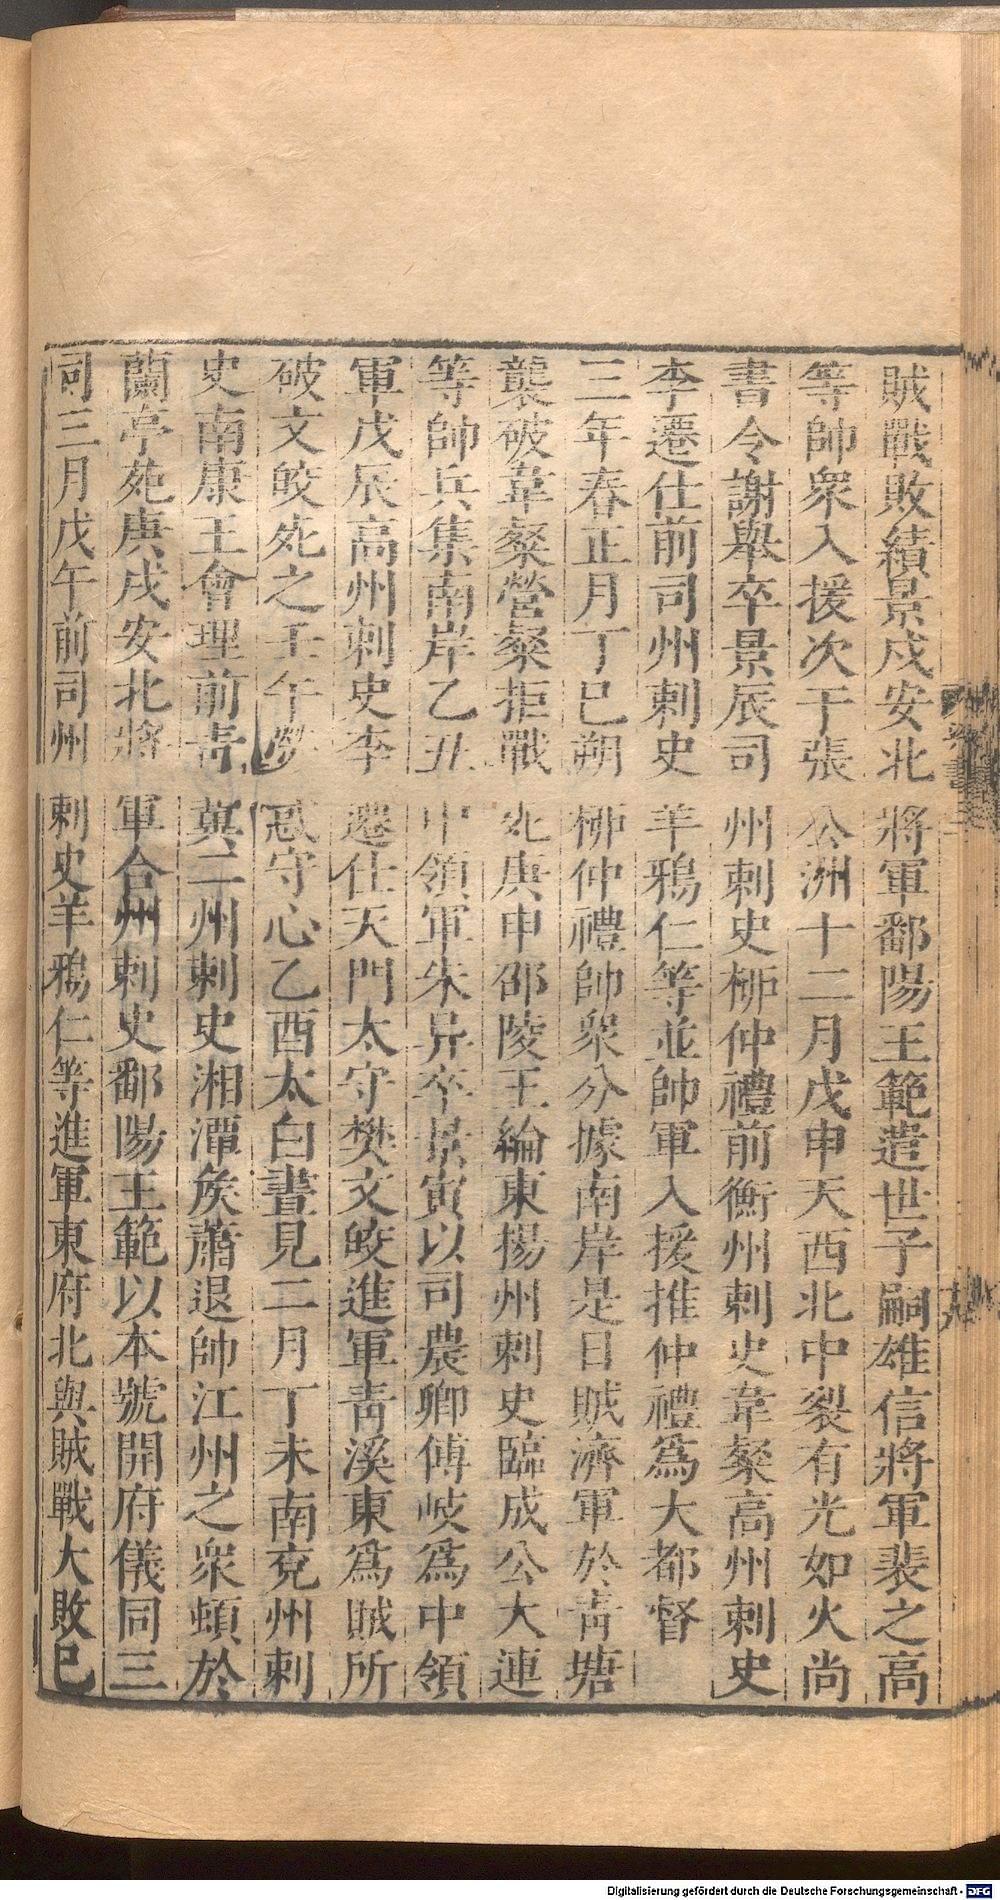 賊戰敗績景戌安北將軍鄱陽王範遣世子嗣雄信將軍裴之高
等帥衆入援次于張公洲十二月戊申天西北中裂有光如火尚
書令謝舉卒景辰司州刺史柳仲禮前衡州刺史韋粲高州刺史
李遷仕前司州刺史羊鴉仁等並帥軍入援推仲禮爲大都督
三年春正月丁巳朔柳仲禮帥衆分據南岸是日賊濟軍於青塘
襲破韋粲營粲拒戰死庚申邵陵王綸東揚州刺史臨成公大連
等帥兵集南岸乙丑中領軍朱异卒景寅以司農卿傅岐爲中領
軍戊辰高州刺史李遷仕天門太守樊文皎進軍青溪東爲賊所
破文皎死之壬午熒惑守心乙酉太白晝見二月丁未南兗州刺
史南康王會理前青冀二州刺史湘潭矦蕭退帥江州之衆頓於
蘭亭苑庚戌安北將軍合州刺史鄱陽王範以本號開府儀同三
司三月戊午前司州刺史羊鴉仁等進軍東府北與賊戰大敗已
Digitalisierung gefördert durch die Deutsche Forschungsgemeinschaft - DFG